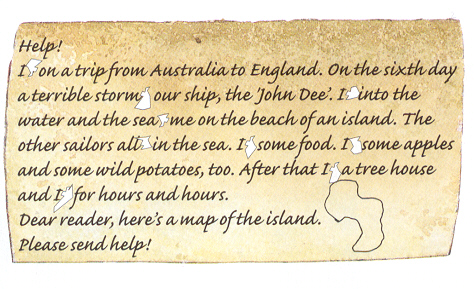 Help!
I on a trip from Australia to England. On the sixth day
a terrible storm our ship, the 'John Dee'. I into the
water and the sea me on the beach of an island. The
other sailors all in the sea. I some food. I some apples
and some wild potatoes, too. After that I a tree house
and I for hours and hours.
Dear reader, here's a map of the island.
Please send help!